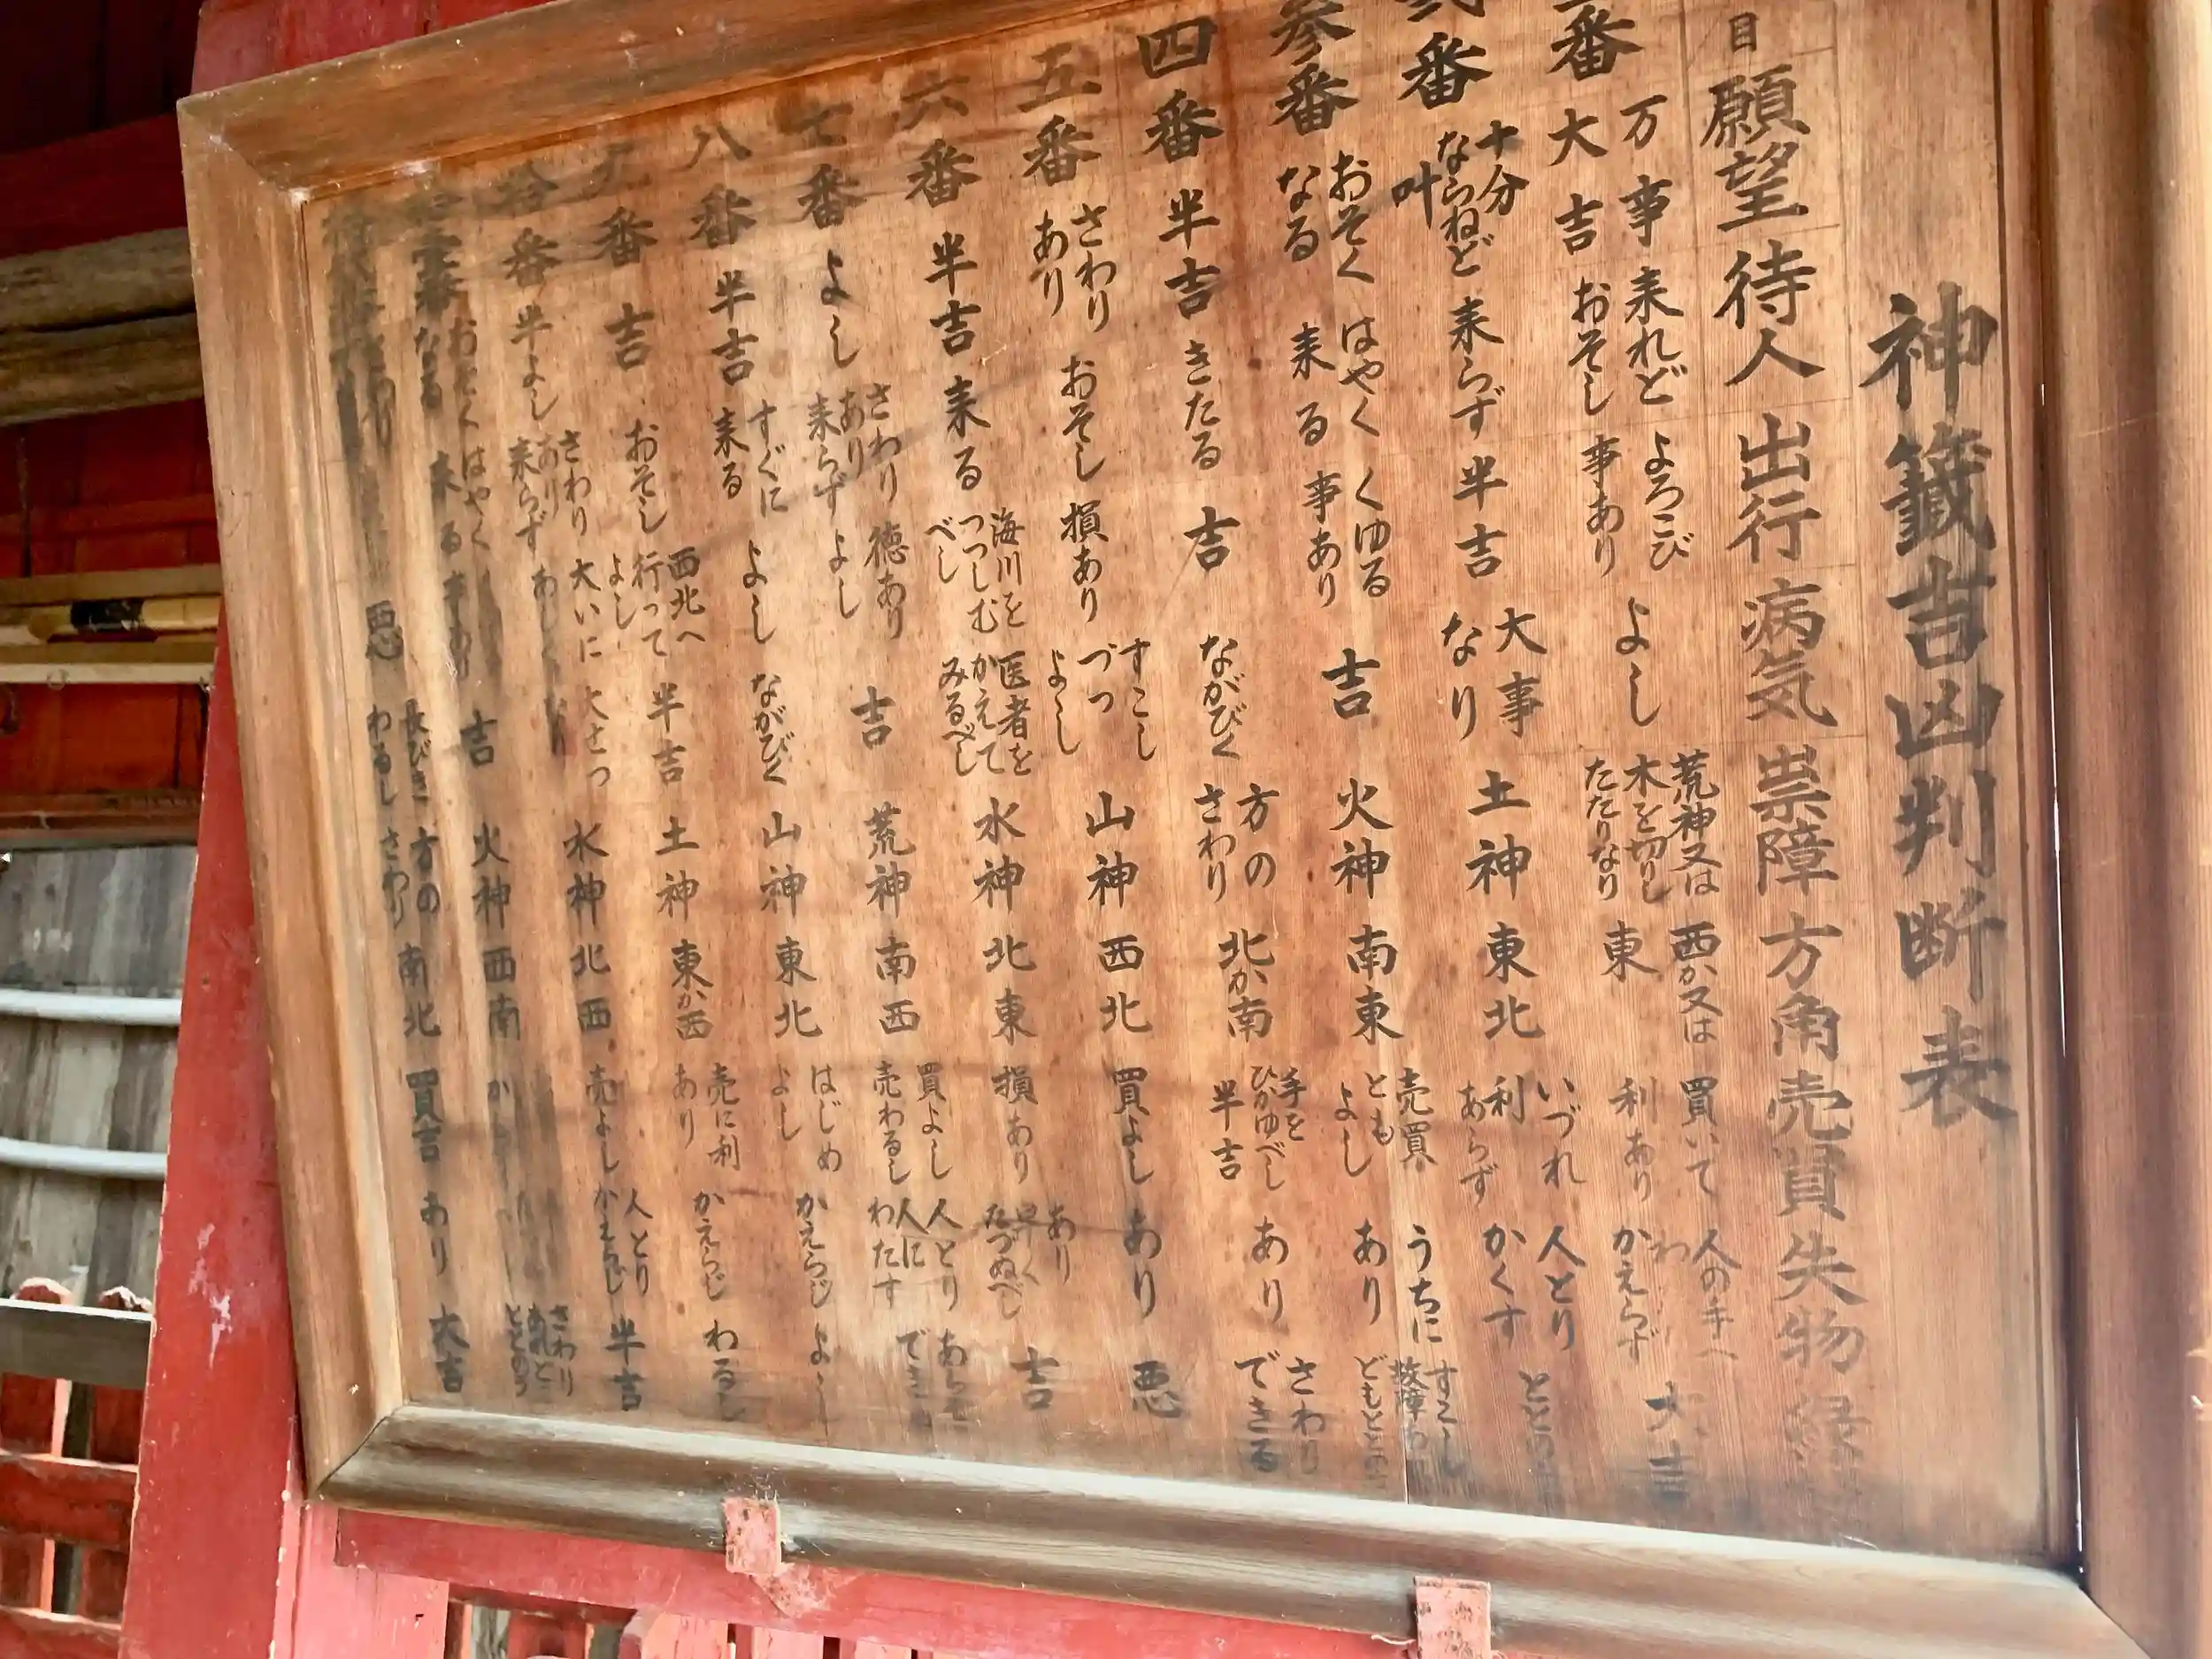 神籤吉凶判断表
目 願望 待人 出行 病気 祟障 方角 売買 失物 縁
番 万事大吉 来れどおそし よろこび事あり よし 荒神又は木を切りしたたりなり 西か又は東 買いて利あり 人の手へわかえらず 大吉
番 十分ならねど叶 来らず 半吉 大事なり 土神 東北 いづれ利あらず 人とりかくす ととの
参番 おそくなる はやく来る くゆる事あり 吉 火神 南東 売買ともよし うちにあり すこし故障 どもととの
四番 半吉 きたる 吉 ながびく 方のさわり 北か南 手をひかゆべし半吉 あり さわりできる
五番 さわりあり おそし 損あり すこしづつよし 山神 西北 買よし あり 悪
六番 半吉 来る 海川をつつしむべし 医者をかえてみるべし 水神 北東 損あり あり早くたづぬべし 吉
七番 よし さわりあり来らず 徳ありよし 吉 荒神 南西 買よし売わるし 人とり人にわたす でき
八番 半吉 すぐに来る よし ながびく 山神 東北 はじめよし かえらじ よし
九番 吉 おそし 西北へ行ってよし 半吉 土神 東か西 売に利あり かえらじ わるし
拾番 半よし さわりあり来らず 大いにあしく 大せつ 水神 北西 売よし 人とりかえらじ 半吉
番 おそくなる はやく来る 事あり 吉 火神 西南 さわりあれどととのう
悪 長びきわるし 方のさわり 南北 買吉 あり 大吉